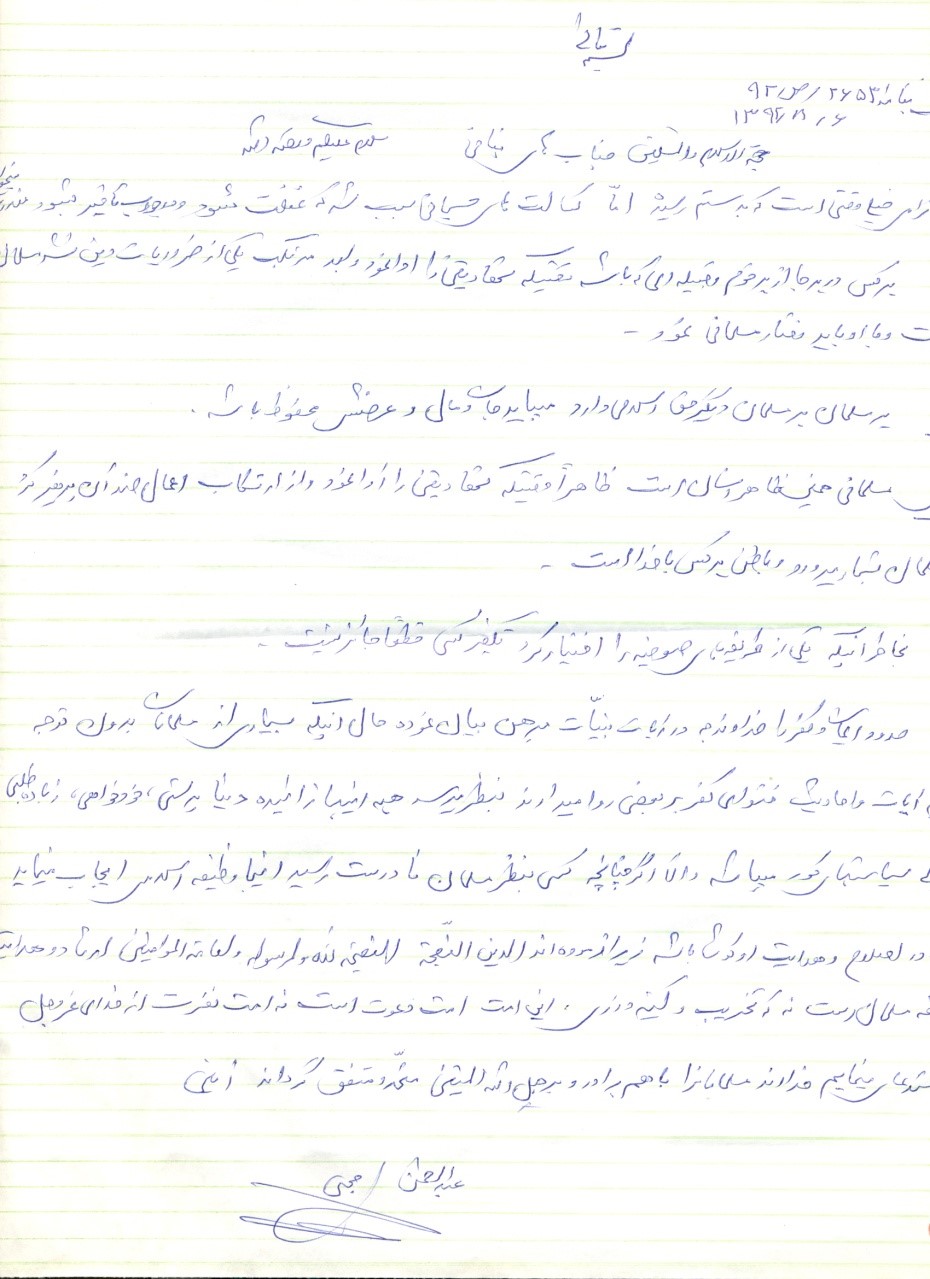 بسمه تعالی
۲۶۵۳/ص/۹۲
۱۳۹۲/۸/۶
حجة الاسلام والمسلمین جناب آقای سلام علیکم ورحمة الله
خیلی وقتی است که بدستم رسیده امّا کسالت های جسمانی سبب شد که غفلت شود و موجب تأخیر میشود
هرکس در هرجا از هر قوم وقبیله ای که باشد وقتیکه شهادتین را ادا نمود و مرتکب یکی از ضروریات دین نشد مسلمان
و با او باید رفتار مسلمانی نمود -
هر مسلمان بر مسلمان دیگر حق اسلامی دارد میباید جان و مال و عرضش محفوظ باشد .
مسلمانی همین ظاهر انسان است ظاهراً وقتیکه شهادتین را ادا نمود و از ارتکاب اعمال ضد آن پرهیز کرد
بشمار میرود و باطن هرکس با خدا است -
بخاطر اینکه یکی از طریقه های صوفیه را اختیار کرد تکفیر کسی قطعًا جائز نیست -
حدود ایمان و کفر را خداوند در آیات بیّنات مبرهن بیان نموده حال اینکه بسیاری از مسلمانان بدون توجه
آیات و احادیث فتوای کفر بر بعضی روا میدارند بنظر میرسد همه اینها زائیده دنیا پرستی، خودخواهی، زیاده طلبی
سیاستهای کور میباشد والّا اگر چنانچه کسی بنظر مسلمان نادرست رسید وظیفه اسلامی ایجاب مینماید
در اصلاح و هدایت او کوشا باشد زیرا فرموده اند الدین النصیحة النصیحة لله ولرسوله ولعامة المؤمنین ارشاد و هدایت
مسلمان است نه که تخریب و کینه ورزی . این امت امت دعوت است نه امت نفرت از خدای عزوجل
مینمایم خداوند مسلمانانرا باهم برادر و بر حبل الله المتین متّحد و متفق گرداند آمین
عبدالرحمن